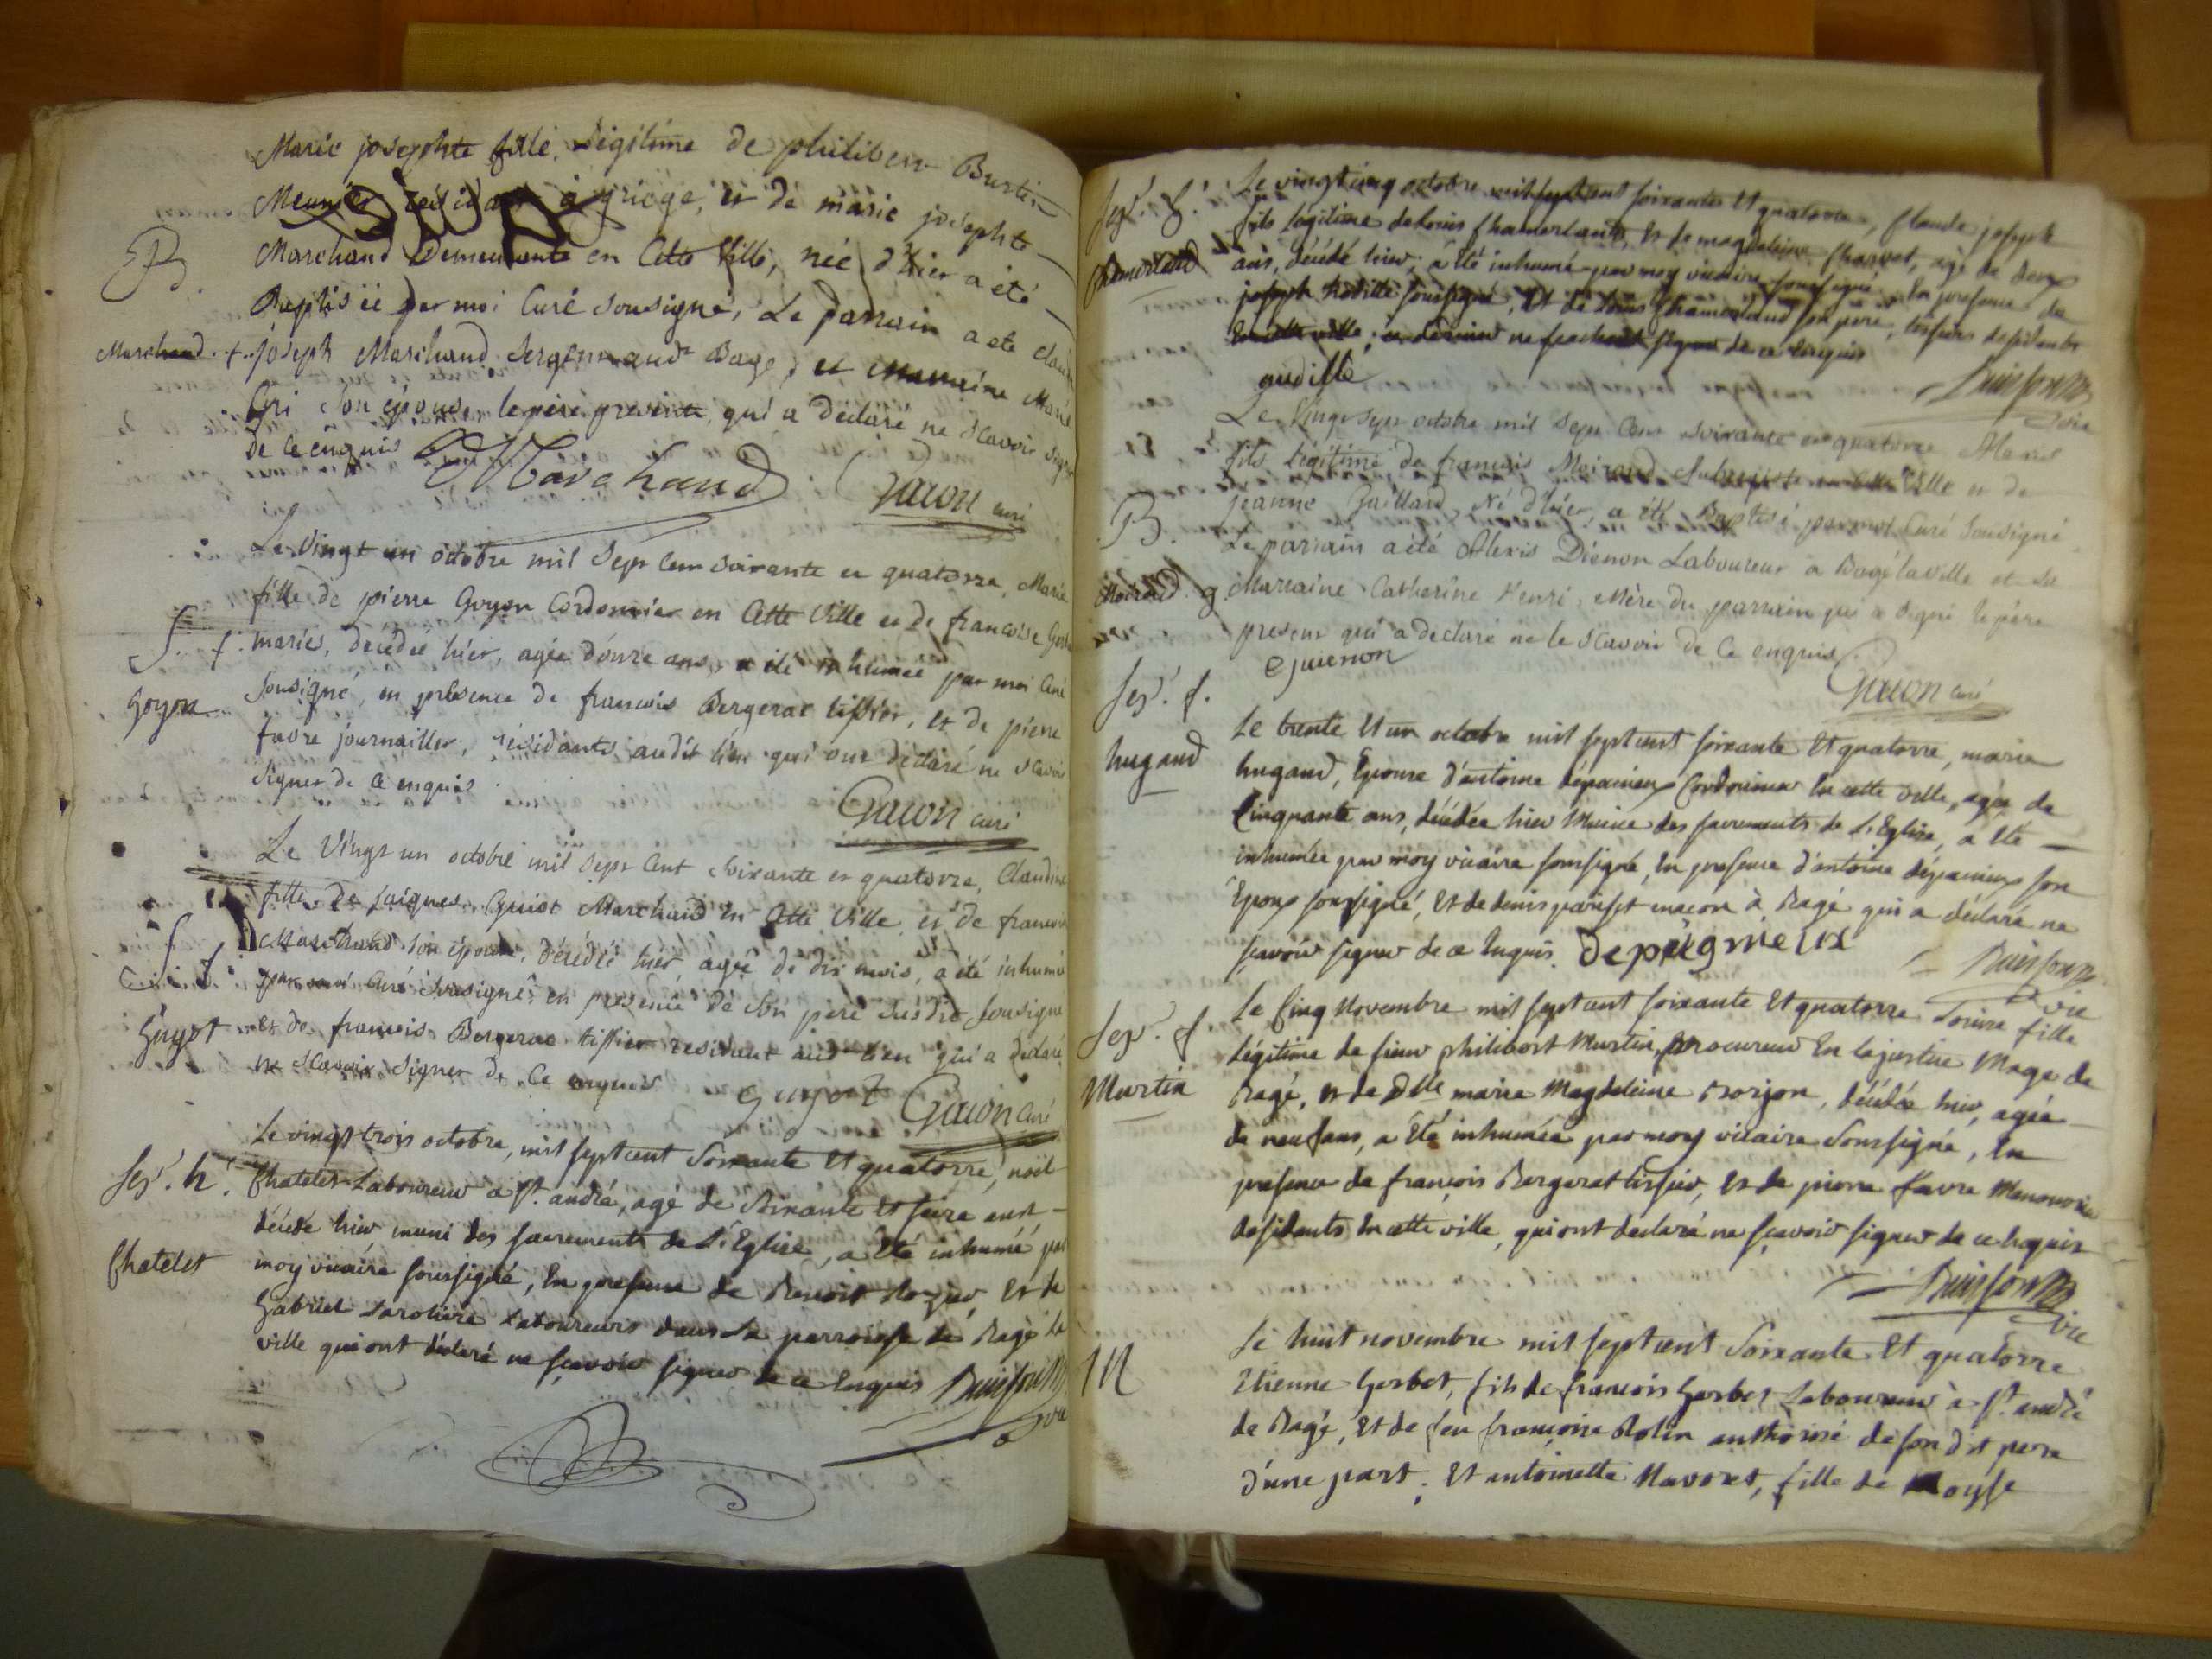 Marie josephte fille Legitime de philibert Burtin
Meunier résidant à griége, et de marie josephte
Marchand Demeurante en Cette Ville, née d'hier a été
B.
Baptisée par moi Curé sousigné, Le parrain a eté claude
Marchand. +. joseph Marchand Sergent audt Bagé, et Marraine Marie
son épouse, le père present qui a déclaré ne scavoir signer
de ce enquis
Marchand
Gacon curé
Le Vingt un octobre mil Sept Cent soixante et quatorze, Marie
fille de pierre Goyon Cordonnier en Cette Ville et de francoise
S. f. mariés, decédée hier, agée d'onze ans, a été inhumée par moi Curé
Goyon Sousigné, en présence de francois Bergerat tissier, et de pierre
favre journailler, résidants audit lieu qui ont déclaré ne scavoir
signer de ce enquis
Gacon curé
Le Vingt un octobre mil Sept Cent Soixante et quatorze, Claudine
fille de jaiques Guiot Marchand en Cette Ville et de francoise
S. f. Marchand son épouse, décédée hier, agée de dix mois, a été inhumée
par moi Curé Sousigné, en presence de Son père susdit Sousigné
Guyot et de francois Bergerat tissier residant audt lieu qui a déclaré
ne scavoir signer de Ce enquis
guyot Gacon Curé
Le vingt trois octobre, mil sept cent Soixante Et quatorze, noël
Sep.re h. Chatelet Laboureur a St. andré, agé de Soixante Et seize ans
décédé hier muni des sacrements de L'Eglise, a Eté inhumé par
Chatelet moy vicaire soussigné, En presence de Benoit Et de
Gabriel Laroliere Laboureurs dans La parroisse de Bagé la
ville qui ont déclaré ne sçavoir signer de ce Enquis Buisson
vic
Sep.re g. Le vingt cinq octobre mil sept cent soixante Et quatorze, Claude joseph
fils légitime de Louis Chamerland, Et de magdeleine Charvet, agé de deux
Chamerland ans, décédé hier, a Eté inhumé par moy vicaire soussigné, En presence de
joseph soussigné, Et de Louis Chamerland son pere,
En cette ville, ce dernier ne scachant signer de ce Enquis
Buisson
vic
Le Vingt Sept octobre mil Sept Cent soixante et quatorze Alexis
fils Légitime de francois Moiraud Aubergiste en Cette Ville et de
jeanne Gaillard, Né d'hier, a été Baptisé par moi Curé Sousigné
B.
Le parrain a été Alexis Diénon Laboureur a Bagé la Ville et la
Moiraud. g. Marraine Catherine Henri, Mère du parrain qui a signé le père
present qui a declaré ne le scavoir de Ce enquis
Gacon curé
Sep.re f.
Le trente Et un octobre mil sept cent soixante Et quatorze, marie
hugand hugand, Epouse d'antoine dépaineux Cordonnier En cette ville, agée de
Cinquante ans, décédée hier Munie des sacrements de L'Eglise, a Eté
inhumée par moy vicaire soussigné, En presence d'antoine dépaineux son
Epoux soussigné, Et de denis à Bagé qui a déclaré ne
sçavoir signer de ce Enquis. depügnieux
Buisson
vic
Sep.re f. Le Cinq Novembre mil sept cent soixante Et quatorze Louise fille
légitime de sieur philibert Martin, procureur En la justice Mage de
Martin Bagé, Et de Dlle marie Magdeleine Borjon, décédée hier, agée
de neuf ans, a Eté inhumée par moy vicaire Soussigné, En
presence de françois Bergerat tissier, Et de pierre favre Manouvrier
Résidents En cette ville, qui ont declaré ne sçavoir signer de ce Enquis
Buisson
vic
M Le huit novembre mil sept cent Soixante Et quatorze
Etienne Gerbet, fils de françois Gerbet Laboureur à St. andré
de Bagé, Et de feu françoise Rolin authorisé de son dt pere
d'une part; Et antoinette Mavoret, fille de Moyse